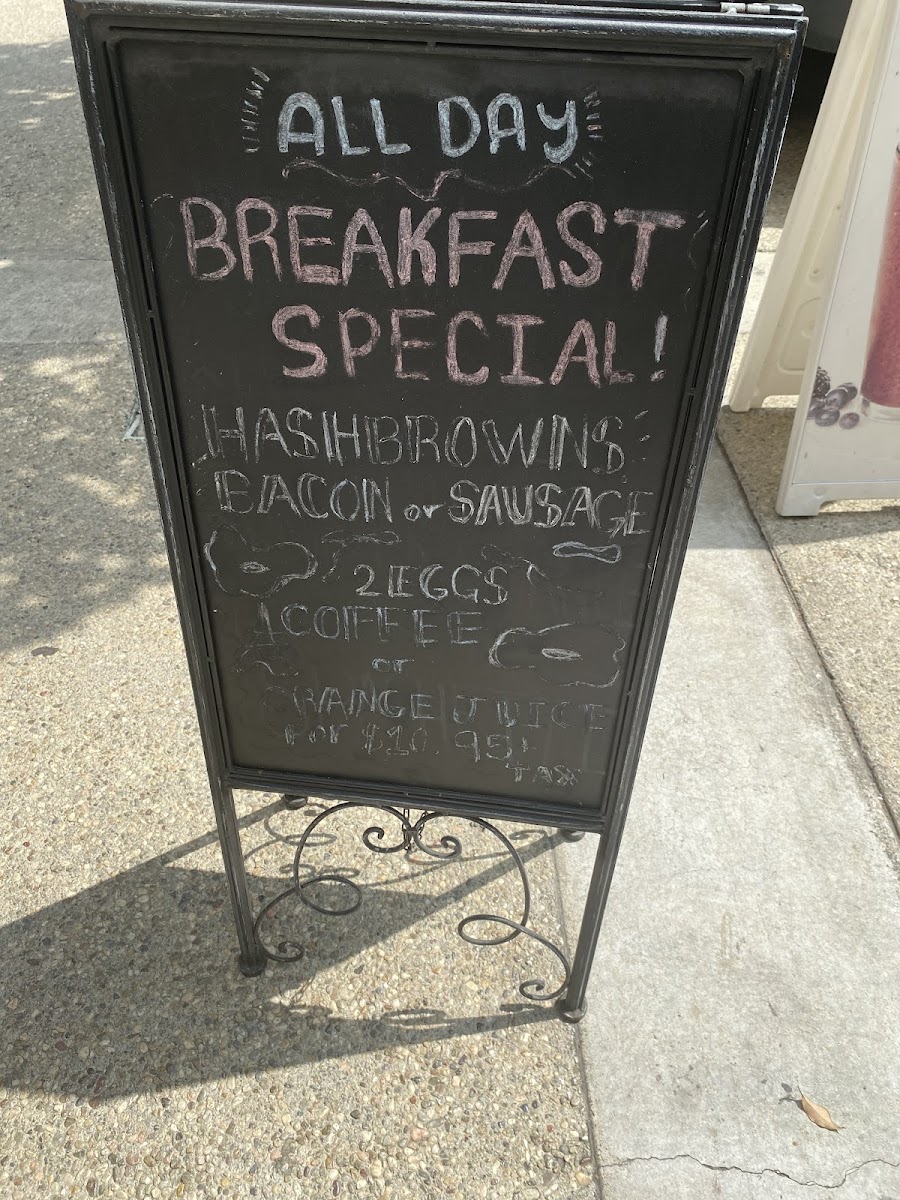 ALL DAY
BREAKFAST
SPECIAL!
HASHBROWNS
BACON or SAUSAGE
2 EGGS
1 COFFEE
or
ORANGE JUICE
for $10.95+
TAX